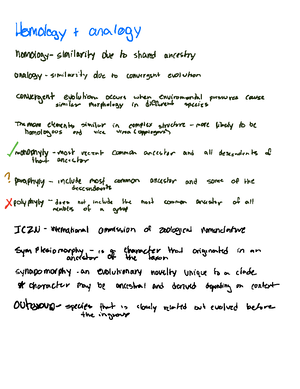 Homology + analogy
homology- similarity due to shared ancestry
analogy - similarity due to convergent evolution
convergent evolution occurs when environmental pressures cause
similar morphology in different species
The more elements similar in complex structure - more likely to be
homologous and vice versa
monophyly - most recent common ancestor and all descendents of
that ancestor
? paraphyly - include most common ancestor and some of the
descendants
polyphyly - does not include the most common ancestor of all
members of a group
ICZN - International Commission of Zoological Nomenclature
Symplesiomorphy - is a character that originated in an
ancestor of the taxon
synapomorphy - an evolutionary novelty unique to a clade
* character may be ancestral and derived depending on context
Outgroup - species that is closely related but evolved before
the ingroup